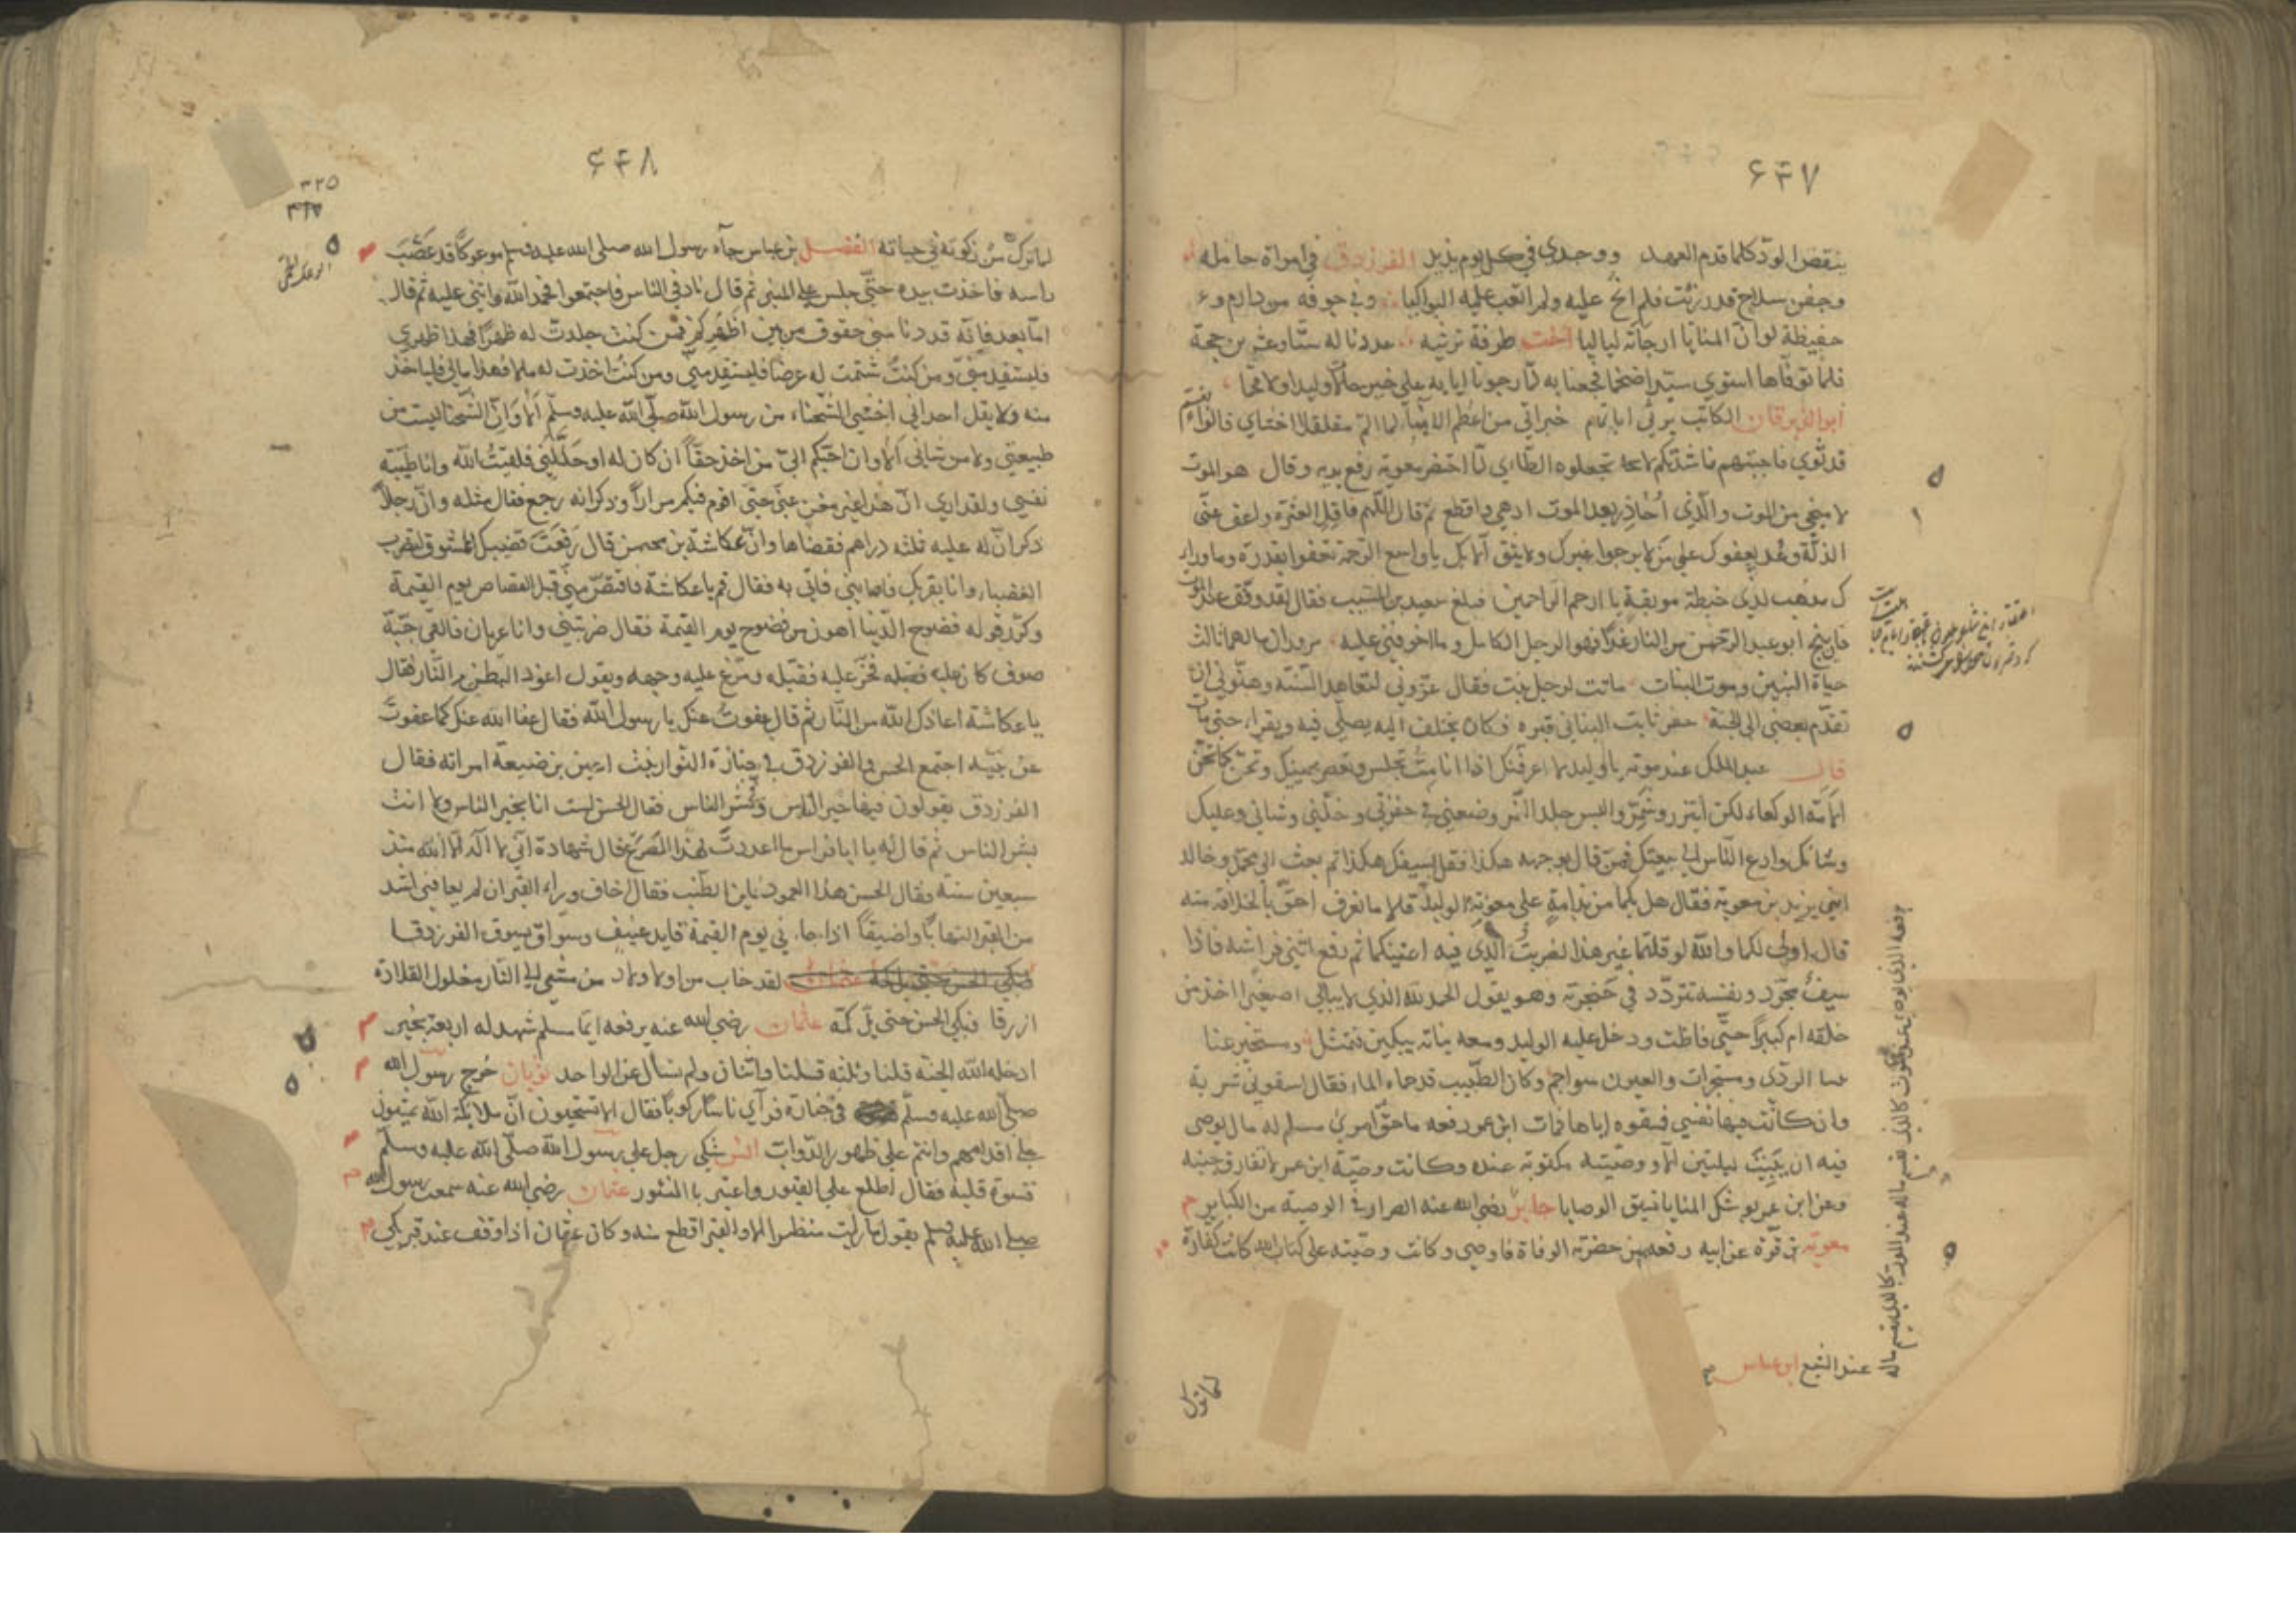 ۶۴۷
ينقض الودّ كلما قدم العهد ووجدي في كل يوم يزيد الفرزدق في امراة حامله
وجفن سلاح قد رزئت فلم انح عليه ولم ابعث عليه البواكيا وفي جوفه من دارم ذو
حفيظة لو ان المنايا ارجأته لياليا اخت طرفة ترثيه عددنا له ستا وعشرين حجة
فلما توفاها استوى سيدا ضخما فجعنا به لما رجونا ايابه على خير حال لا وليدا ولا قحما
ابو الزبرقان الكاتب يرثي ابا تمام خبر اتى من اعظم الانباء لما الم مقلقل الاحشاء قالوا
قد ثوى فاجبتهم ناشدتكم لا تجعلوه الطائي لما احتضر معوية رفع يديه وقال هو الموت
لا منجى من الموت والذي احاذر بعد الموت ادهى واقطع ثم قال اللهم فاقل العثرة واعف عن
الزلة وعد بعفوك على من لا يرجوا غيرك ولا يثق الا بك يا واسع الرحمة تعفوا بقدرة وما وراء
ك مذهب لذي خطيئة موبقة يا ارحم الراحمين فبلغ سعيد بن المسيب فقال لقد وفق عند الموت
فان ينج ابو عبد الرحمن من النار غدا فهو الرجل الكامل وما اخوفني عليه مروان مالهما ثالث
حياة البنين وموت البنات ماتت لرجل بنت فقال عزوني لتعاهد السنة وهنوني ان
تقدم بعضي الى الجنة حفر ثابت البناني قبره فكان يختلف اليه يصلي فيه ويقراء حتى مات
قال عبد الملك عند موته يا وليد لا اعرفنك اذا انا مت تجلس وتعصر عينيك وتحن كما تحن
الامة الوكعاء لكن ايتزر وشمر والبس جلد النمر وضعني في حفرتي وخلني وشاني وعليك
وشانك وادع الناس الى بيعتك فمن قال بوجهه هكذا فقل بسيفك هكذا ثم بعث الى محمد وخالد
ابني يزيد بن معوية فقال هل بكما من ندامة على معوية الوليد قالا ما نعرف احق بالخلافة منه
قال اولى لكما والله لو قلتما غير هذا لضربت الذي فيه اعينكما ثم رفع اثني فراشه فاذا
سيف مجرد ونفسه تتردد في حنجرته وهو يقول الحمد لله الذي لا يبالي اصغيرا اخذ من
خلقه ام كبيرا حتى فاظت ودخل عليه الوليد ومعه بناته يبكين فتمثل ومستخبر عنا
بنا الردى ومستخبرات والعيون سواجم وكان الطبيب قد حماه الماء فقال اسقوني شربة
وان كانت فيها نفسي فسقوه اياها فمات ابن عمر رفعه ما حق امرئ مسلم له مال يوصى
فيه ان يبيت ليلتين الا ووصيته مكتوبة عنده وكانت وصية ابن عمر لا تفارق جيبه
وعن ابن عمر يوشك المنايا تسبق الوصايا جابر رضي الله عنه الضرار في الوصية من الكباير م
معوية بن قرة عن ابيه رفعه من حضرته الوفاة فاوصى وكانت وصيته على كتاب الله كانت كفارة
عند الشبع ابن عباس
۶۴۸
۳۲۵
لما ترك من زكوته في حياته الفضل بن عباس جاء رسول الله صلى الله عليه وسلم موعوكا قد عصب
راسه فاخذت بيده حتى جلس على المنبر ثم قال ناد في الناس فاجتمعوا فحمد الله واثنى عليه ثم قال
اما بعد فانه قد دنا مني حقوق من بين اظهركم فمن كنت جلدت له ظهرا فهذا ظهري
فليستقد مني ومن كنت شتمت له عرضا فليستقد مني ومن كنت اخذت له مالا فهذا مالي فلياخذ
منه ولا يقل احد اني اخشى الشحناء من رسول الله صلى الله عليه وسلم الا وان الشحنا ليست من
طبيعتي ولا من شاني الا وان احبكم الي من اخذ حقا ان كان له او حللني فلقيت الله وانا طيبة
نفسي ولقد ارى ان هذا غير مغن عني حتى اقوم فيكم مرارا وذكر انه رجع فقال مثله وان رجلا
ذكر ان له عليه ثلثه دراهم فقضاها وان عكاشة بن محصن قال رفعت قضيبك الممشوق لتضرب
الغضباء وانا بقربك فاصابني فاتي به فقال قم يا عكاشة فاقتص مني قبل القصاص يوم القيمة
وكرر قوله فضوح الدنيا اهون من فضوح يوم القيمة فقال ضربتني وانا عريان فالقى جبة
صوف كانت عليه فخر عليه فقبله ومرغ عليه وجهه ويقول اعوذ البطن من النار فقال
يا عكاشة اعاذك الله من النار ثم قال عفوت عنك يا رسول الله فقال عفا الله عنك كما عفوت
عن نبيه اجتمع الحسن والفرزدق في جنازة النوار بنت اعين بن ضبيعة امراته فقال
الفرزدق يقولون فيها خير الناس وشر الناس فقال الحسن لست انا بخير الناس ولا انت
بشر الناس ثم قال له يا ابا فراس ما اعددت لهذا المصرع قال شهادة ان لا اله الا الله منذ
سبعين سنة فقال الحسن هذا العمود فاين الطنب فقال اخاف وراء القبر ان لم يعافني اشد
من القبر التهابا واضيقا اذا جاء ني يوم القيمة قايد عنيف وسواق يسوق الفرزدقا
لقد خاب من اولاد من مشى الى النار مغلول القلادة
ازرقا فبكى الحسن حتى بل كمه عثمان رضي الله عنه يرفعه ايما مسلم شهد له اربعة بخير م
ادخله الله الجنة قلنا وثلثة قلنا واثنان ولم نسال عن الواحد ثوبان خرج رسول الله م
صلى الله عليه وسلم في جنازة فرآى ناسا ركوبا فقال الا تستحيون ان ملايكة الله يمشون
على اقدامهم وانتم على ظهور الدواب انس شكى رجل على رسول الله صلى الله عليه وسلم
قسوة قلبه فقال اطلع على القبور واعتبر بالنشور عثمان رضي الله عنه سمعت رسول الله م
صلى الله عليه وسلم يقول ما رايت منظرا الا والقبر اقطع منه وكان عثمان اذا وقف عند قبر بكى م